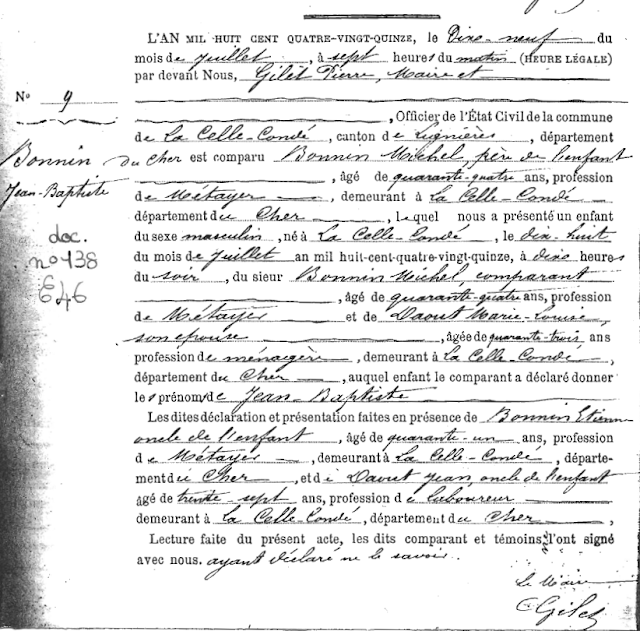 L'AN MIL HUIT CENT QUATRE-VINGT-QUINZE, le Dix-neuf du
mois de juillet, à sept heures du matin (HEURE LÉGALE)
par devant Nous, Gilet Pierre, Maire et
No 9
, Officier de l'État Civil de la commune
de La Celle-Condé, canton de Lignières, département
Bonnin
Jean-Baptiste
du Cher est comparu Bonnin Michel, père de l'enfant
, âgé de quarante-quatre ans, profession
de Métayer, demeurant à La Celle-Condé
département du Cher, Lequel nous a présenté un enfant
doc.
no 138
E46
du sexe masculin, né à La Celle-Condé, le dix-huit
du mois de juillet an mil huit-cent-quatre-vingt-quinze, à dix heures
du soir, du sieur Bonnin Michel, comparant
, âgé de quarante-quatre ans, profession
de Métayer et de Daout Marie-Louise,
son épouse, âgée de quarante-trois ans
profession de ménagère, demeurant à La Celle-Condé,
département du Cher, auquel enfant le comparant a déclaré donner
les prénoms de Jean-Baptiste
Les dites déclaration et présentation faites en présence de Bonnin Etienne
oncle de l'enfant, âgé de quarante-un ans, profession
de Métayer, demeurant à La Celle-Condé, départe-
ment du Cher, et de Daout Jean, oncle de l'enfant
âgé de trente-sept ans, profession de laboureur
demeurant à La Celle-Condé, département du Cher,
Lecture faite du présent acte, les dits comparant et témoins l'ont signé
avec nous. ayant déclaré ne le savoir.
Le Maire
Gilet